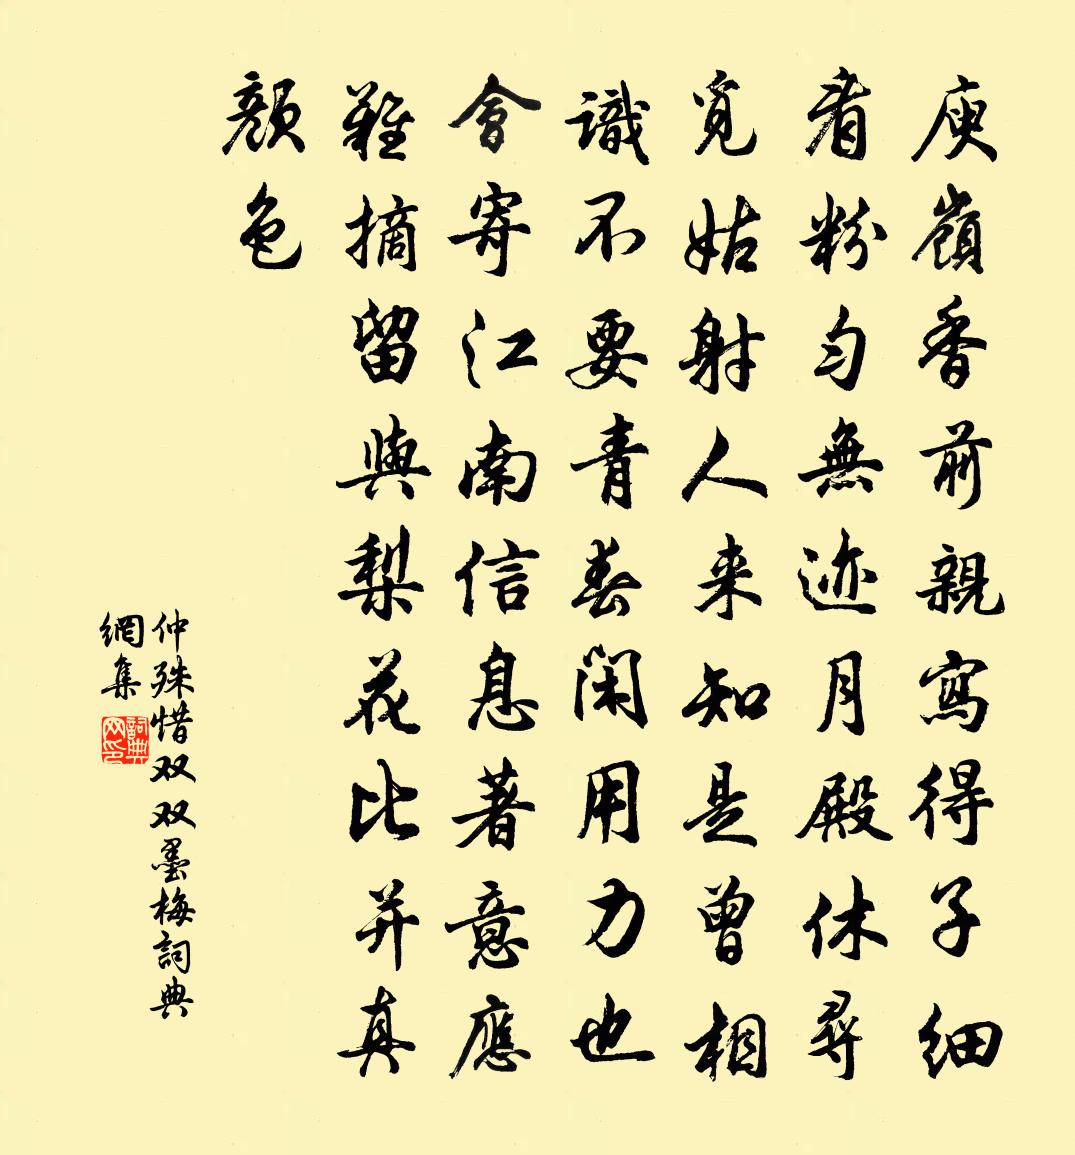 庾嶺香前親寫得子細
看粉匀無迹月殿休尋
覓姑射人来知是曾相
識不要青春閑用力也
會寄江南信息著意應
難摘留與梨花比并真
顏色
仲殊惜双双墨梅詞典
網集
詞典網印